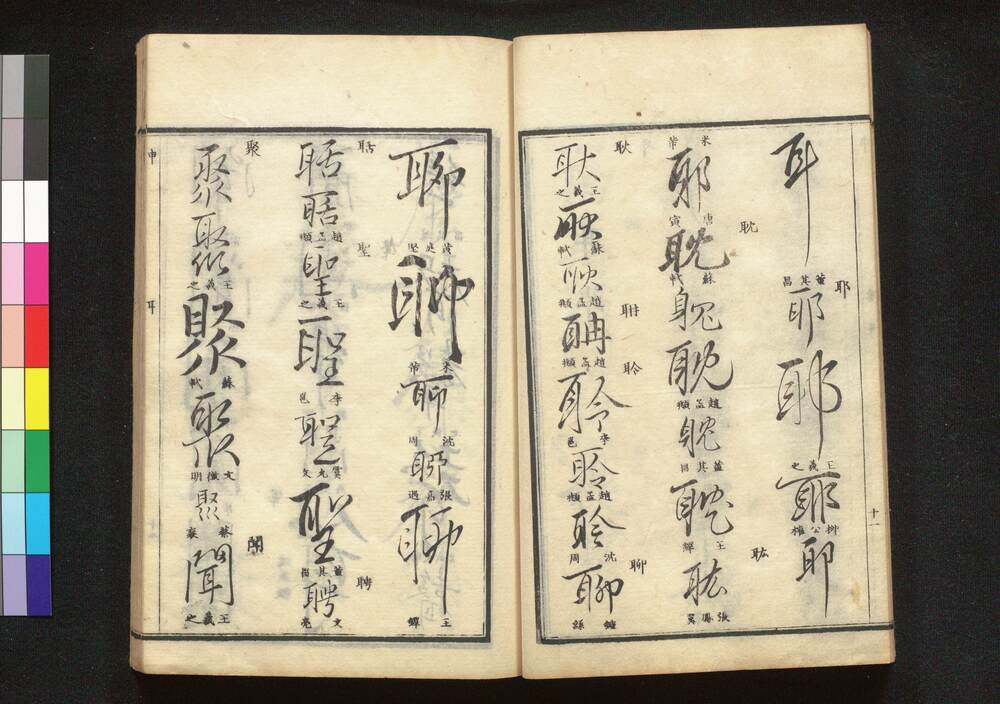 耳
董其昌
耶
耶
耶
王羲之
耶
柳公權
耶
十一
米芾
耶
唐寅
耽
耽
蘇軾
耽
耽
趙孟頫
耽
董其昌
耽
王鐸
耾
耾
張鳳翼
耿
耿
王羲之
耿
蘇軾
耿
趙孟頫
聃
趙孟頫
聆
聆
李邕
聆
趙孟頫
聆
沈周
聊
聊
鍾繇
聊
黃庭堅
聊
米芾
聊
沈周
聊
張
聊
王鐸
聒
聒
聒
趙孟頫
聖
聖
王羲之
聖
李邕
聖
虞允文
聖
董其昌
聘
聘
文
聚
聚
聚
王羲之
聚
蘇軾
聚
文徵明
聚
蔡襄
聞
聞
王羲之
申
耳